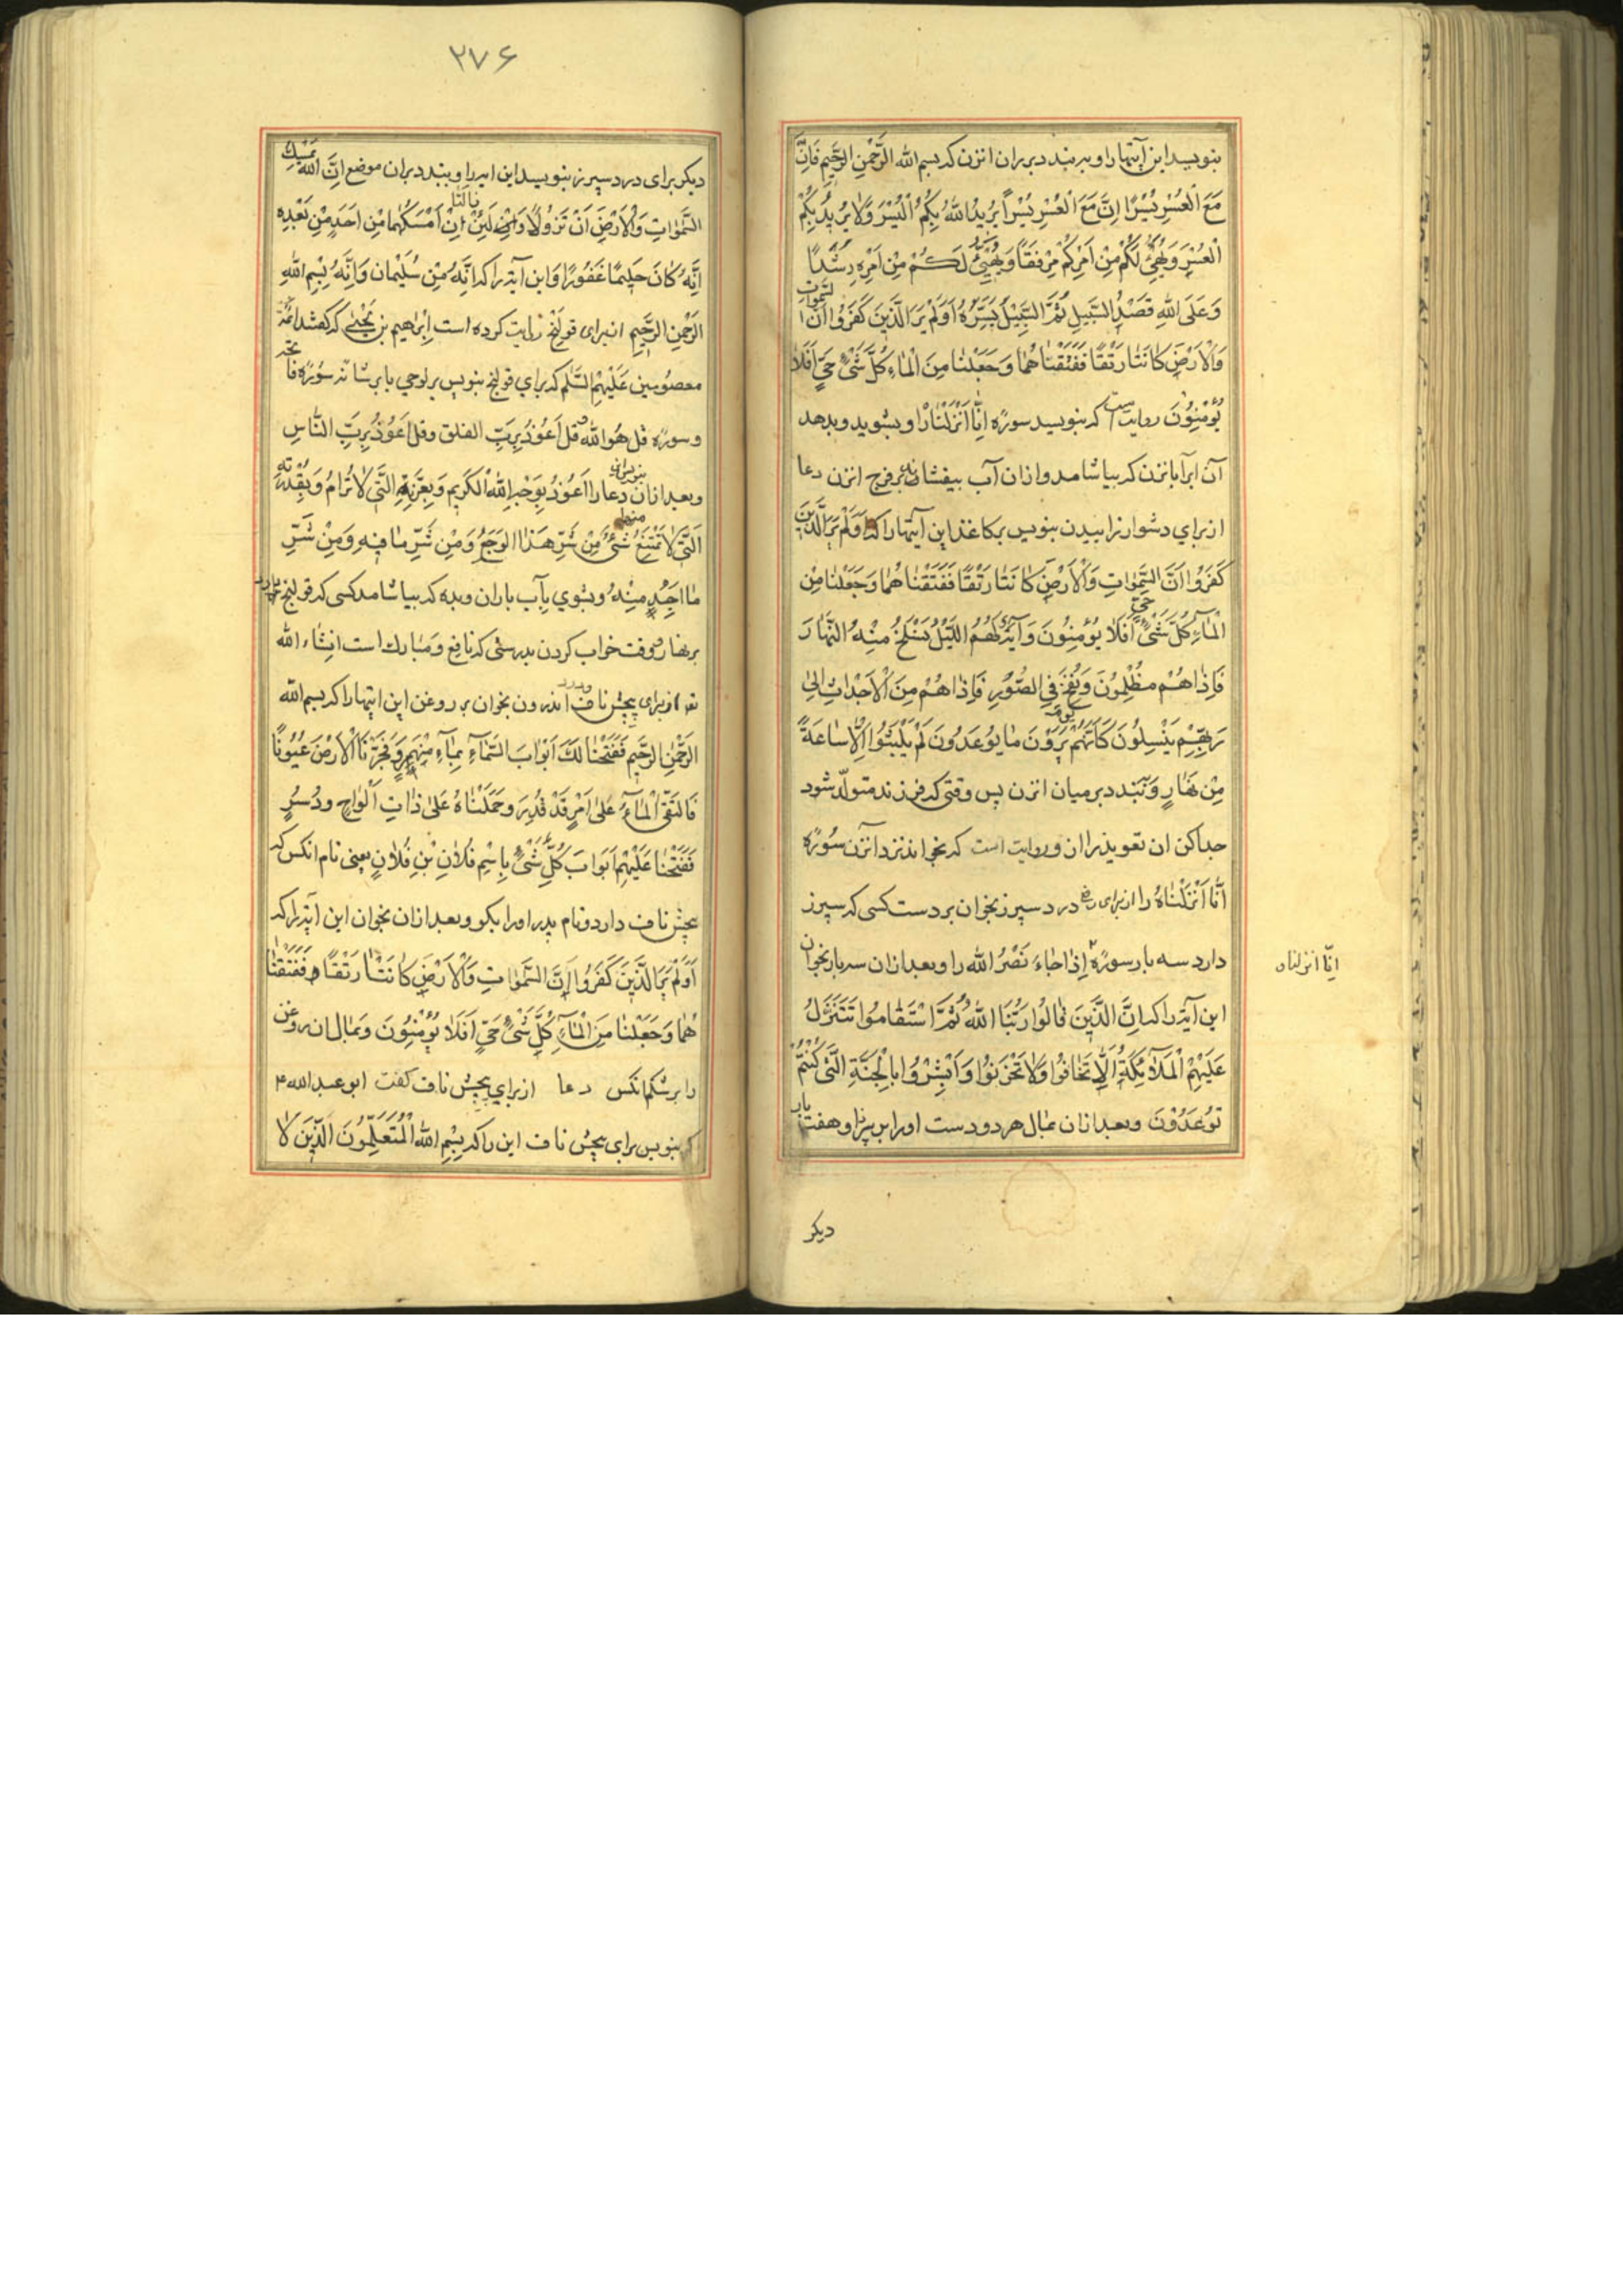 بنویسد این آیتها را و بر بندد بر ران انزن که بسم الله الرَّحْمنِ الرَّحیمِ فَاِنَّ
مَعَ الْعُسْرِ یُسْرًا اِنَّ مَعَ الْعُسْرِ یُسْراً یُریدُ اللهُ بِکُمُ الْیُسْرَ وَلا یُریدُ بِکُمُ
الْعُسْرَ وَیُهَیِّئْ لَکُمْ مِنْ اَمْرِکُمْ مِرْفَقًا وَیُهَیِّئْ لَکُمْ مِنْ اَمْرِهِ رَشَدًا
وَعَلَی اللهِ قَصْدُ السَّبیلِ ثُمَّ السَّبیلَ یَسَّرَهُ اَوَلَمْ یَرَ الَّذینَ کَفَرُوا اَنَّ السَّمٰوات
وَالْاَرْضَ کانَتا رَتْقًا فَفَتَقْناهُما وَجَعَلْنا مِنَ الْماءِ کُلَّ شَیْءٍ حَیٍّ اَفَلا
یُؤْمِنُونَ روایت است که بنویسد سوره اِنّا اَنْزَلْنا را و بشوید و بدهد
آن ابرا بانزن که بیاشامد و ازان آب بیفشاند بر فرج انزن دعا
از برای دشوار زاییدن بنویس بر کاغذ این آیتها را که اَوَلَمْ یَرَ الَّذینَ
کَفَرُوا اَنَّ السَّمٰواتِ وَالْاَرْضَ کانَتا رَتْقًا فَفَتَقْناهُما وَجَعَلْنا مِنَ
الْماءِ کُلَّ شَیْءٍ حَیٍّ اَفَلا یُؤْمِنُونَ وَآیَةٌ لَهُمُ اللَّیْلُ نَسْلَخُ مِنْهُ النَّهارَ
فَاِذاهُمْ مُظْلِمُونَ وَنُفِخَ فِی الصُّورِ فَاِذاهُمْ مِنَ الْاَجْداثِ اِلی
رَبِّهِمْ یَنْسِلُونَ کَاَنَّهُمْ یَوْمَ یَرَوْنَ ما یُوعَدُونَ لَمْ یَلْبَثُوا اِلّا ساعَةً
مِنْ نَهارٍ وَ ببندد بر میان انزن پس وقتی که فرزند متولّد شود
جدا کن ان تعویذ را از ان و روایت است که بخوانند نزد آنزن سُوره
اَنّا اَنْزَلْناهُ را از برای درد سپرز بخوان بر دست کسی که سپرز
دارد سه بار سوره اِذا جاءَ نَصْرُ الله را و بعد ازان سه بار بخوان
این آیه را که اِنَّ الَّذینَ قالُوا رَبُّنَا اللهُ ثُمَّ اسْتَقامُوا تَتَنَزَّلُ
عَلَیْهِمُ الْمَلائِکَةُ اَلّا تَخافُوا وَلا تَحْزَنُوا وَاَبْشِرُوا بِالْجَنَّةِ الَّتی کُنْتُمْ
تُوعَدُونَ و بعد ازان بمال هر دو دست او را بر سپرز او هفت بار
اِنّا انزلناه
دیکر
۲۷۶
دیکر برای درد سپرز بنویسد این ایه را و ببندد بران موضع اِنَّ اللهَ یُمْسِكُ
السَّمٰواتِ وَالْاَرْضَ اَنْ تَزُولا وَلَئِنْ زالَتا اِنْ اَمْسَکَهُما مِنْ اَحَدٍ مِنْ بَعْدِهِ
اِنَّهُ کانَ حَلیمًا غَفُورًا وَ این آیة را که اِنَّهُ مِنْ سُلَیْمانَ وَاِنَّهُ بِسْمِ اللهِ
الرَّحْمنِ الرَّحیمِ از برای قولنج روایت کرده است اِبْراهیم بن یَحْیی که کفتند ائمّه
معصُومین عَلَیْهِمُ السَّلم که برای قولنج بنویس بر لوحی یا بر شانه سُوره فاتحه
و سوره قل هُوَ الله و قل اَعُوذُ بِرَبِّ الفلق و قل اَعُوذُ بِرَبِّ النّاسِ
و بعد ازان بنویس این دعا را اَعُوذُ بِوَجْهِ اللهِ الْکَریمِ وَبِعِزَّتِهِ الَّتی لا تُرامُ وَبِقُدْرَتِهِ
الَّتی لا یَمْتَنِعُ مِنها شَیْءٌ مِنْ شَرِّ هٰذا الْوَجَعِ وَمِنْ شَرِّ ما فیهِ وَمِنْ شَرِّ
ما اَجِدُ مِنْهُ و بشوی بآب باران و بده که بیاشامد کسی که قولنج دارد
بر نهار و وقت خواب کردن بدرستی که نافع و مبارك است انشاء الله
تعه از برای پیچش ناف و درد اندرون بخوان بر روغن این ایتها را که بسم الله
الرَّحْمنِ الرَّحیمِ فَفَتَحْنا لَكَ اَبْوابَ السَّماءِ بِماءٍ مُنْهَمِرٍ وَفَجَّرْنَا الْاَرْضَ عُیُونًا
فَالْتَقَی الْماءُ عَلی اَمْرٍ قَدْ قُدِرَ وَحَمَلْناهُ عَلی ذاتِ اَلْواحٍ وَدُسُرٍ
فَفَتَحْنا عَلَیْهِمْ اَبْوابَ کُلِّ شَیْءٍ بِاسْمِ فُلانِ بْنِ فُلانٍ یعنی نام انکس که
پیچش ناف دارد و نام پدر او را بکو و بعد ازان بخوان این آیة را که
اَوَلَمْ یَرَ الَّذینَ کَفَرُوا اَنَّ السَّمٰواتِ وَالْاَرْضَ کانَتا رَتْقًا فَفَتَقْنا
هُما وَجَعَلْنا مِنَ الْماءِ کُلَّ شَیْءٍ حَیٍّ اَفَلا یُؤْمِنُونَ و بمال ان روغن
را بر شکم انکس دعا از برای پیچش ناف کفت ابو عبد الله ۴
که بنویس برای پیچش ناف این را که بِسْمِ اللهِ الْمُتَعَلِّمُونَ الَّذینَ لا